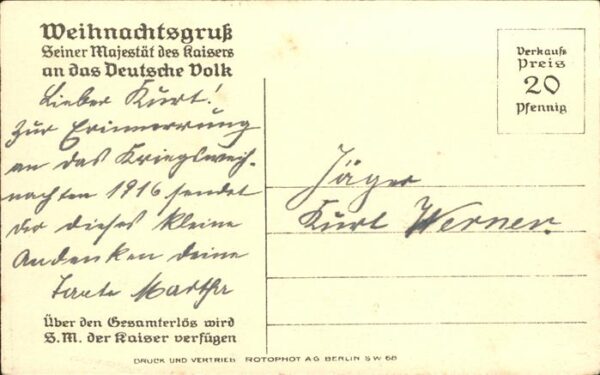 Weihnachtsgruß
Seiner Majestät des Kaisers
an das Deutsche Volk
Lieber Kurt!
Zur Erinnerrung
an das Kriegsweih-
nachten 1916 sendet
dir dieses kleine
Andenken deine
Tante Martha
Über den Gesamterlös wird
S.M. der Kaiser verfügen
Verkaufs
Preis
20
Pfennig
Jäger
Kurt Werner.
DRUCK UND VERTRIEB ROTOPHOT AG BERLIN SW 68